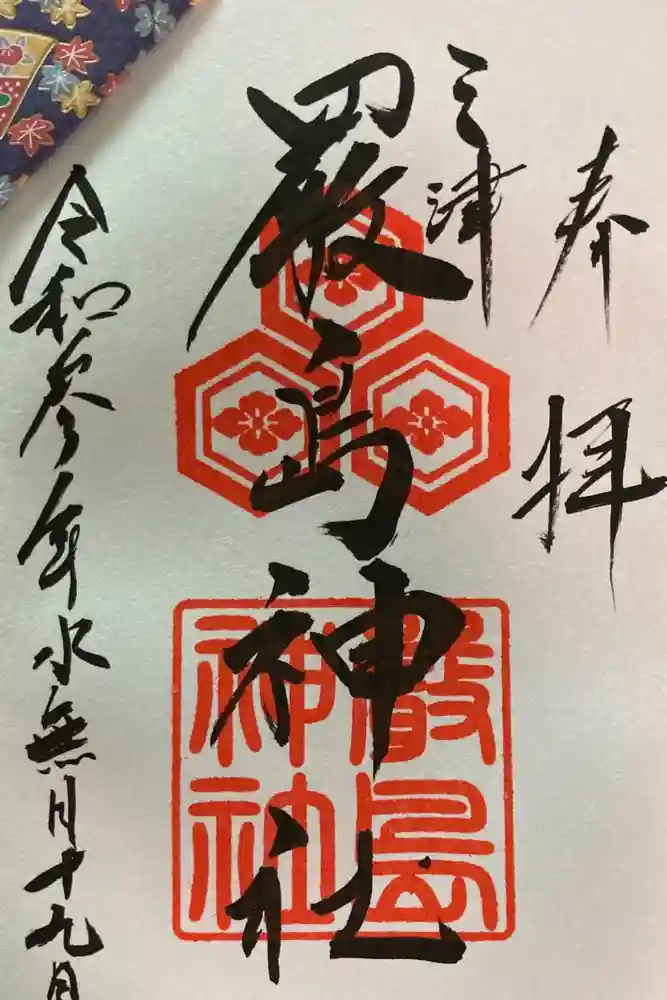 奉拝
三津
嚴島神社
嚴島
神社
令和参年水無月十九日